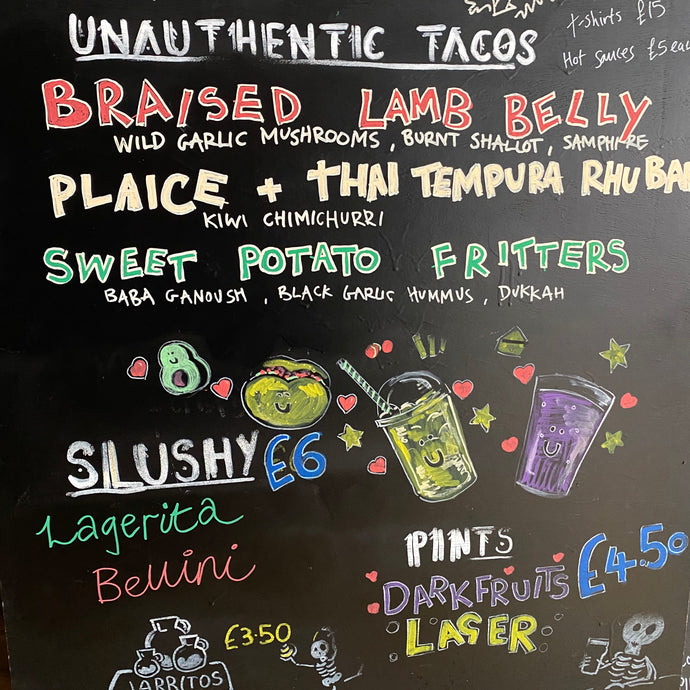 t-shirts £15
Hot sauces £5 ea
UNAUTHENTIC TACOS
BRAISED LAMB BELLY
WILD GARLIC MUSHROOMS, BURNT SHALLOT, SAMPHIRE
PLAICE + THAI TEMPURA RHUBAR
KIWI CHIMICHURRI
SWEET POTATO FRITTERS
BABA GANOUSH, BLACK GARLIC HUMMUS, DUKKAH
SLUSHY £6
Lagerita
Bellini
PINTS £4.50
DARKFRUITS
LAGER
£3.50
JARRITOS